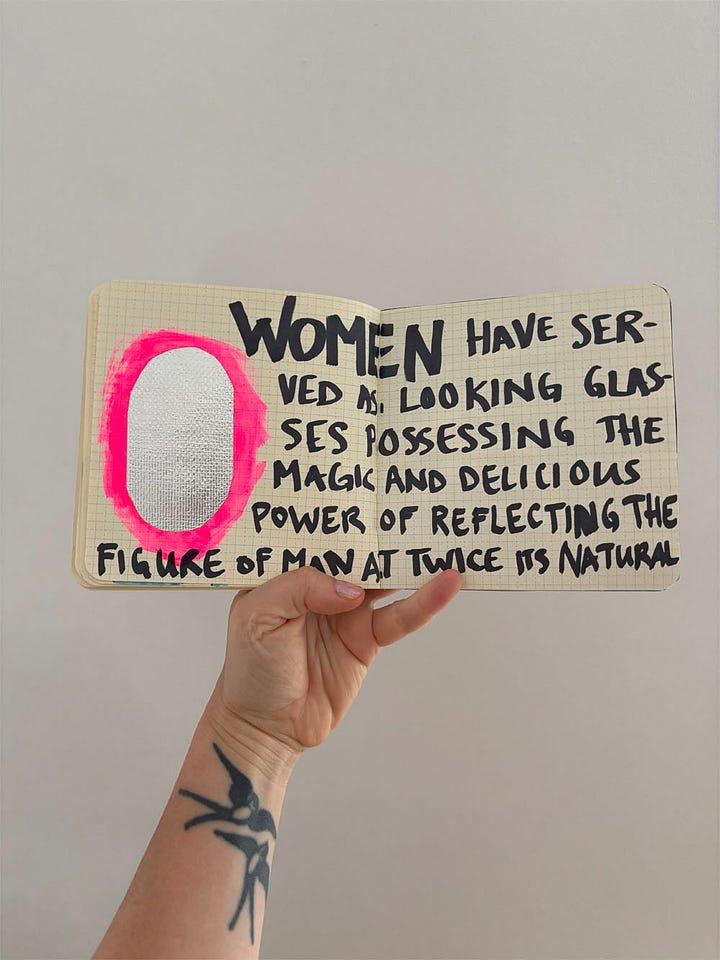 WOMEN HAVE SER-
VED AS LOOKING GLAS-
SES POSSESSING THE
MAGIC AND DELICIOUS
POWER OF REFLECTING THE
FIGURE OF MAN AT TWICE ITS NATURAL